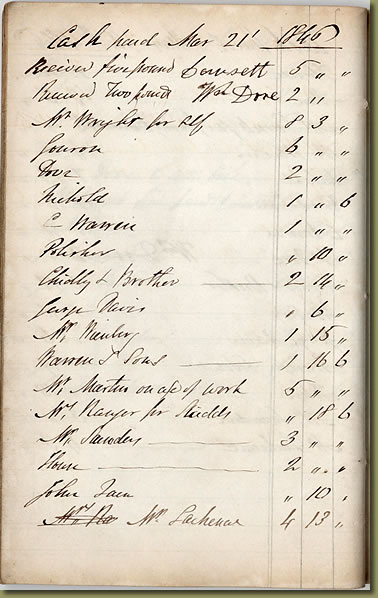 Cash paid Mar 21st 1846
Received five pound Dowsett 5 " "
Received Two pound Wm Dove 2 "
Mr Wright for Self 8 3 "
6 " "
Dove 2 " "
Nichold 1 " 6
C Warren 1 " "
Polisher " 10 "
Chidley & Brother 2 14 "
George Davis " 6 "
Mr 1 15 "
Warren & Sons 1 16 6
Mr Martin on a/c of work 5 " "
Mr Ranger for " 18 6
Mr Saunders 3 " "
House 2 " "
John " 10 "
Mr Lachenal 4 13 "